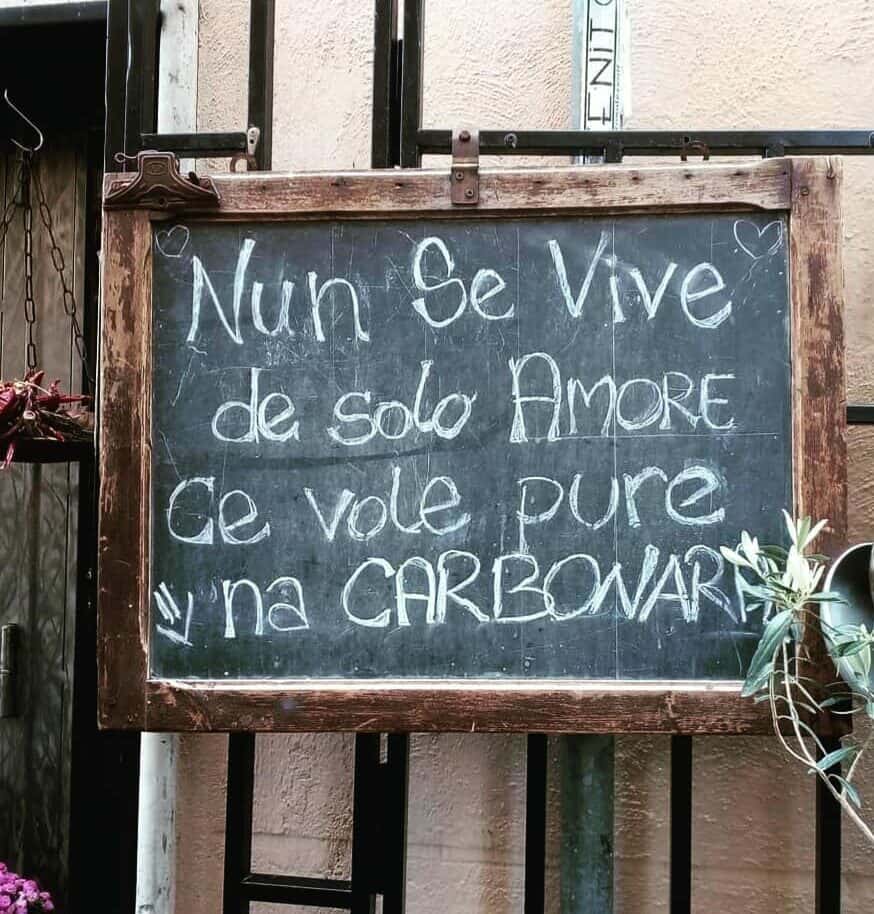 ENIT
Nun Se Vive
de solo AMORE
Ce vole pure
'na CARBONARA